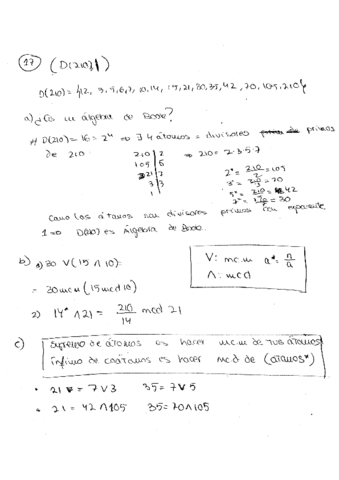 17 (D(210),|)
D(210) = {1,2, 3,5,6,7,10,14, 15,21,30,35,42,70,105,210}
a) ¿Es un álgebra de Boole?
# D(210) = 16 = 2⁴ ⇒ ∃ 4 átomos = divisores primos
de 210
210 | 2 ⇒ 210 = 2·3·5·7
105 | 5
21 | 7
3 | 3
1
2* = 210/2 = 105
3* = 210/3 = 70
5* = 210/5 = 42
7* = 210/7 = 30
Como los átomos son divisores primos con exponente
1 ⇒ D(210) es álgebra de Boole.
b) 1) 30 V (15 ∧ 10):
= 30 mcm (15 mcd 10)
V: mcm a* = n/a
∧: mcd
2) 14* ∧ 21 = 210/14 mcd 21
c) Supremo de átomos es hacer mcm de tus átomos
Ínfimo de coátomos es hacer mcd de (átomos*)
• 21 = 7 V 3 35 = 7 V 5
• 21 = 42 ∧ 105 35 = 70 ∧ 105